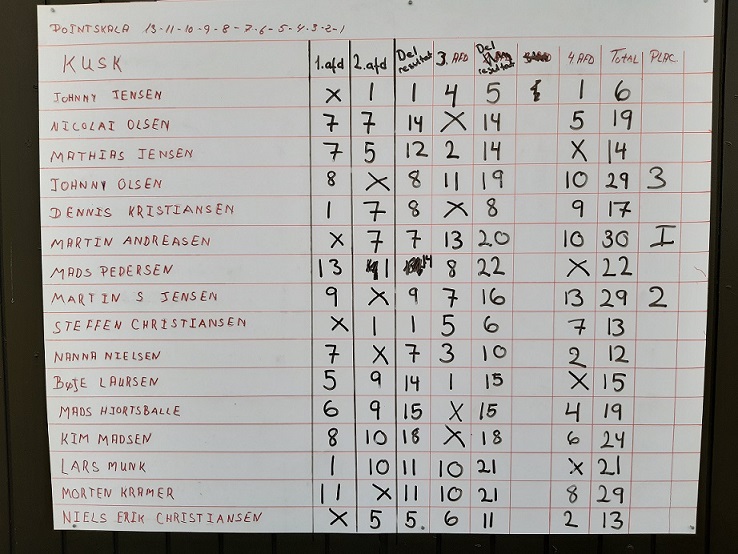 POINTSKALA 13-11-10-9-8-7-6-5-4-3-2-1
KUSK 1.afd 2.afd Del resultat 3. AFD Del resultat 4 AFD TOTAL PLAC
JOHNNY JENSEN X 1 1 4 5 1 6
NICOLAI OLSEN 7 7 14 X 14 5 19
MATHIAS JENSEN 7 5 12 2 14 X 14
JOHNNY OLSEN 8 X 8 11 19 10 29 3
DENNIS KRISTIANSEN 1 7 8 X 8 9 17
MARTIN ANDREASEN X 7 7 13 20 10 30 I
MADS PEDERSEN 13 1 14 8 22 X 22
MARTIN S JENSEN 9 X 9 7 16 13 29 2
STEFFEN CHRISTIANSEN X 1 1 5 6 7 13
NANNA NIELSEN 7 X 7 3 10 2 12
BØJE LAURSEN 5 9 14 1 15 X 15
MADS HJORTSBALLE 6 9 15 X 15 4 19
KIM MADSEN 8 10 18 X 18 6 24
LARS MUNK 1 10 11 10 21 X 21
MORTEN KRAMER 11 X 11 10 21 8 29
NIELS ERIK CHRISTIANSEN X 5 5 6 11 2 13